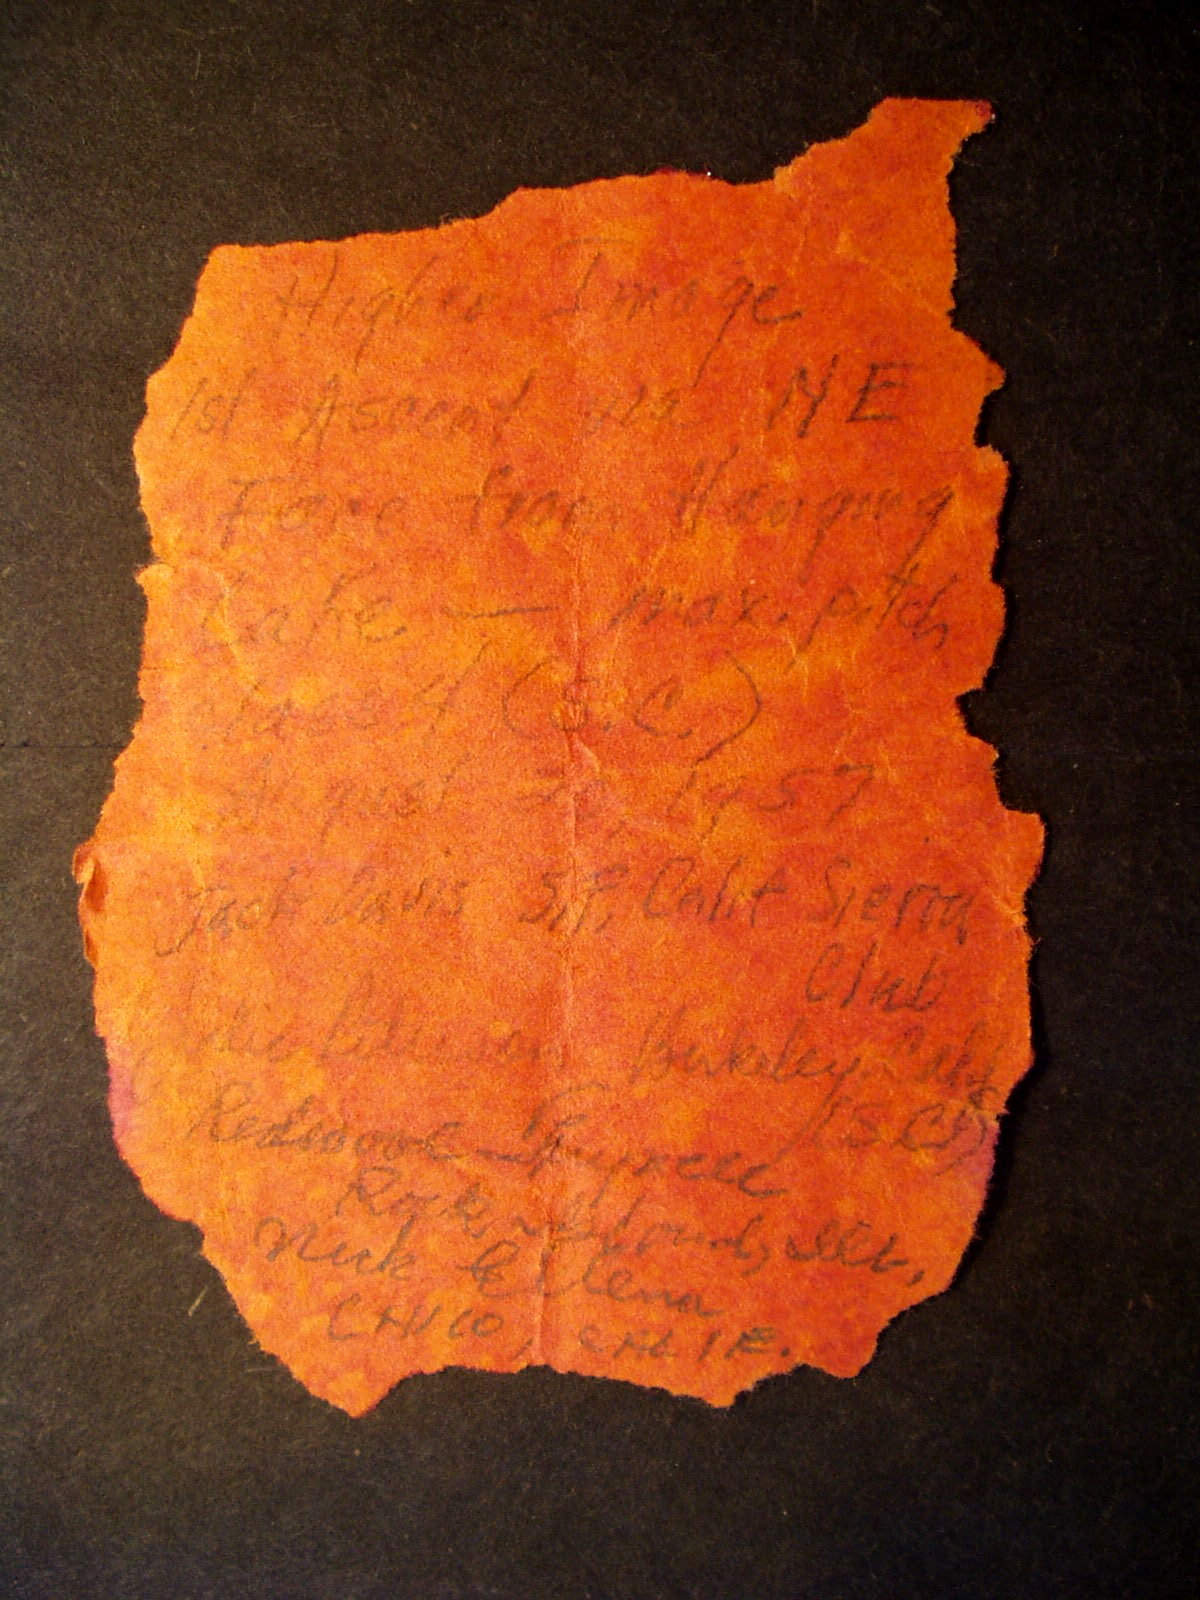 Higher Image
1st Ascent via NE
Face from Hanging
Lake — max. pitch
class 4 (S.C.)
August 1957
Jack Davis S.F., Calif Sierra
Club
Berkeley, Calif
(SC)
Redwood Fryxell
Rock Island, Ill.
Nick Clinch
CHICO, CALIF.